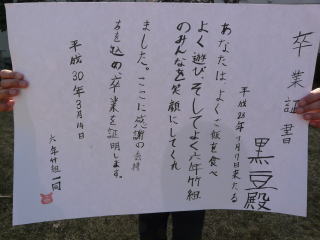 卒業証書
黒豆殿
平成28年7月17日来たる
あなたは、よくご飯を食べ
よく遊び、そしてよく六年竹組
のみんなを笑顔にしてくれ
ました。ここに感謝の気持
ちを込め卒業を証明します。
平成30年3月14日
六年竹組一同